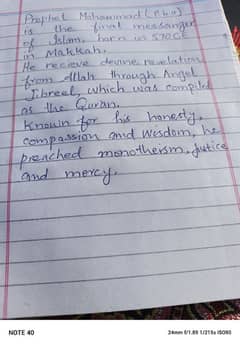 Prophet Mohammad (P.b.u)
is the final messanger
of Islam, born in 570CE
in Makkah.
He recieve devine revelation
from Allah through Angel
Jibreel, which was compiled
as the Quran.
Knowin for his honesty,
compassion and wisdom, he
preached monotheism, jutice
and mercy.
NOTE 40
24mm f/1.89 1/215s ISO50